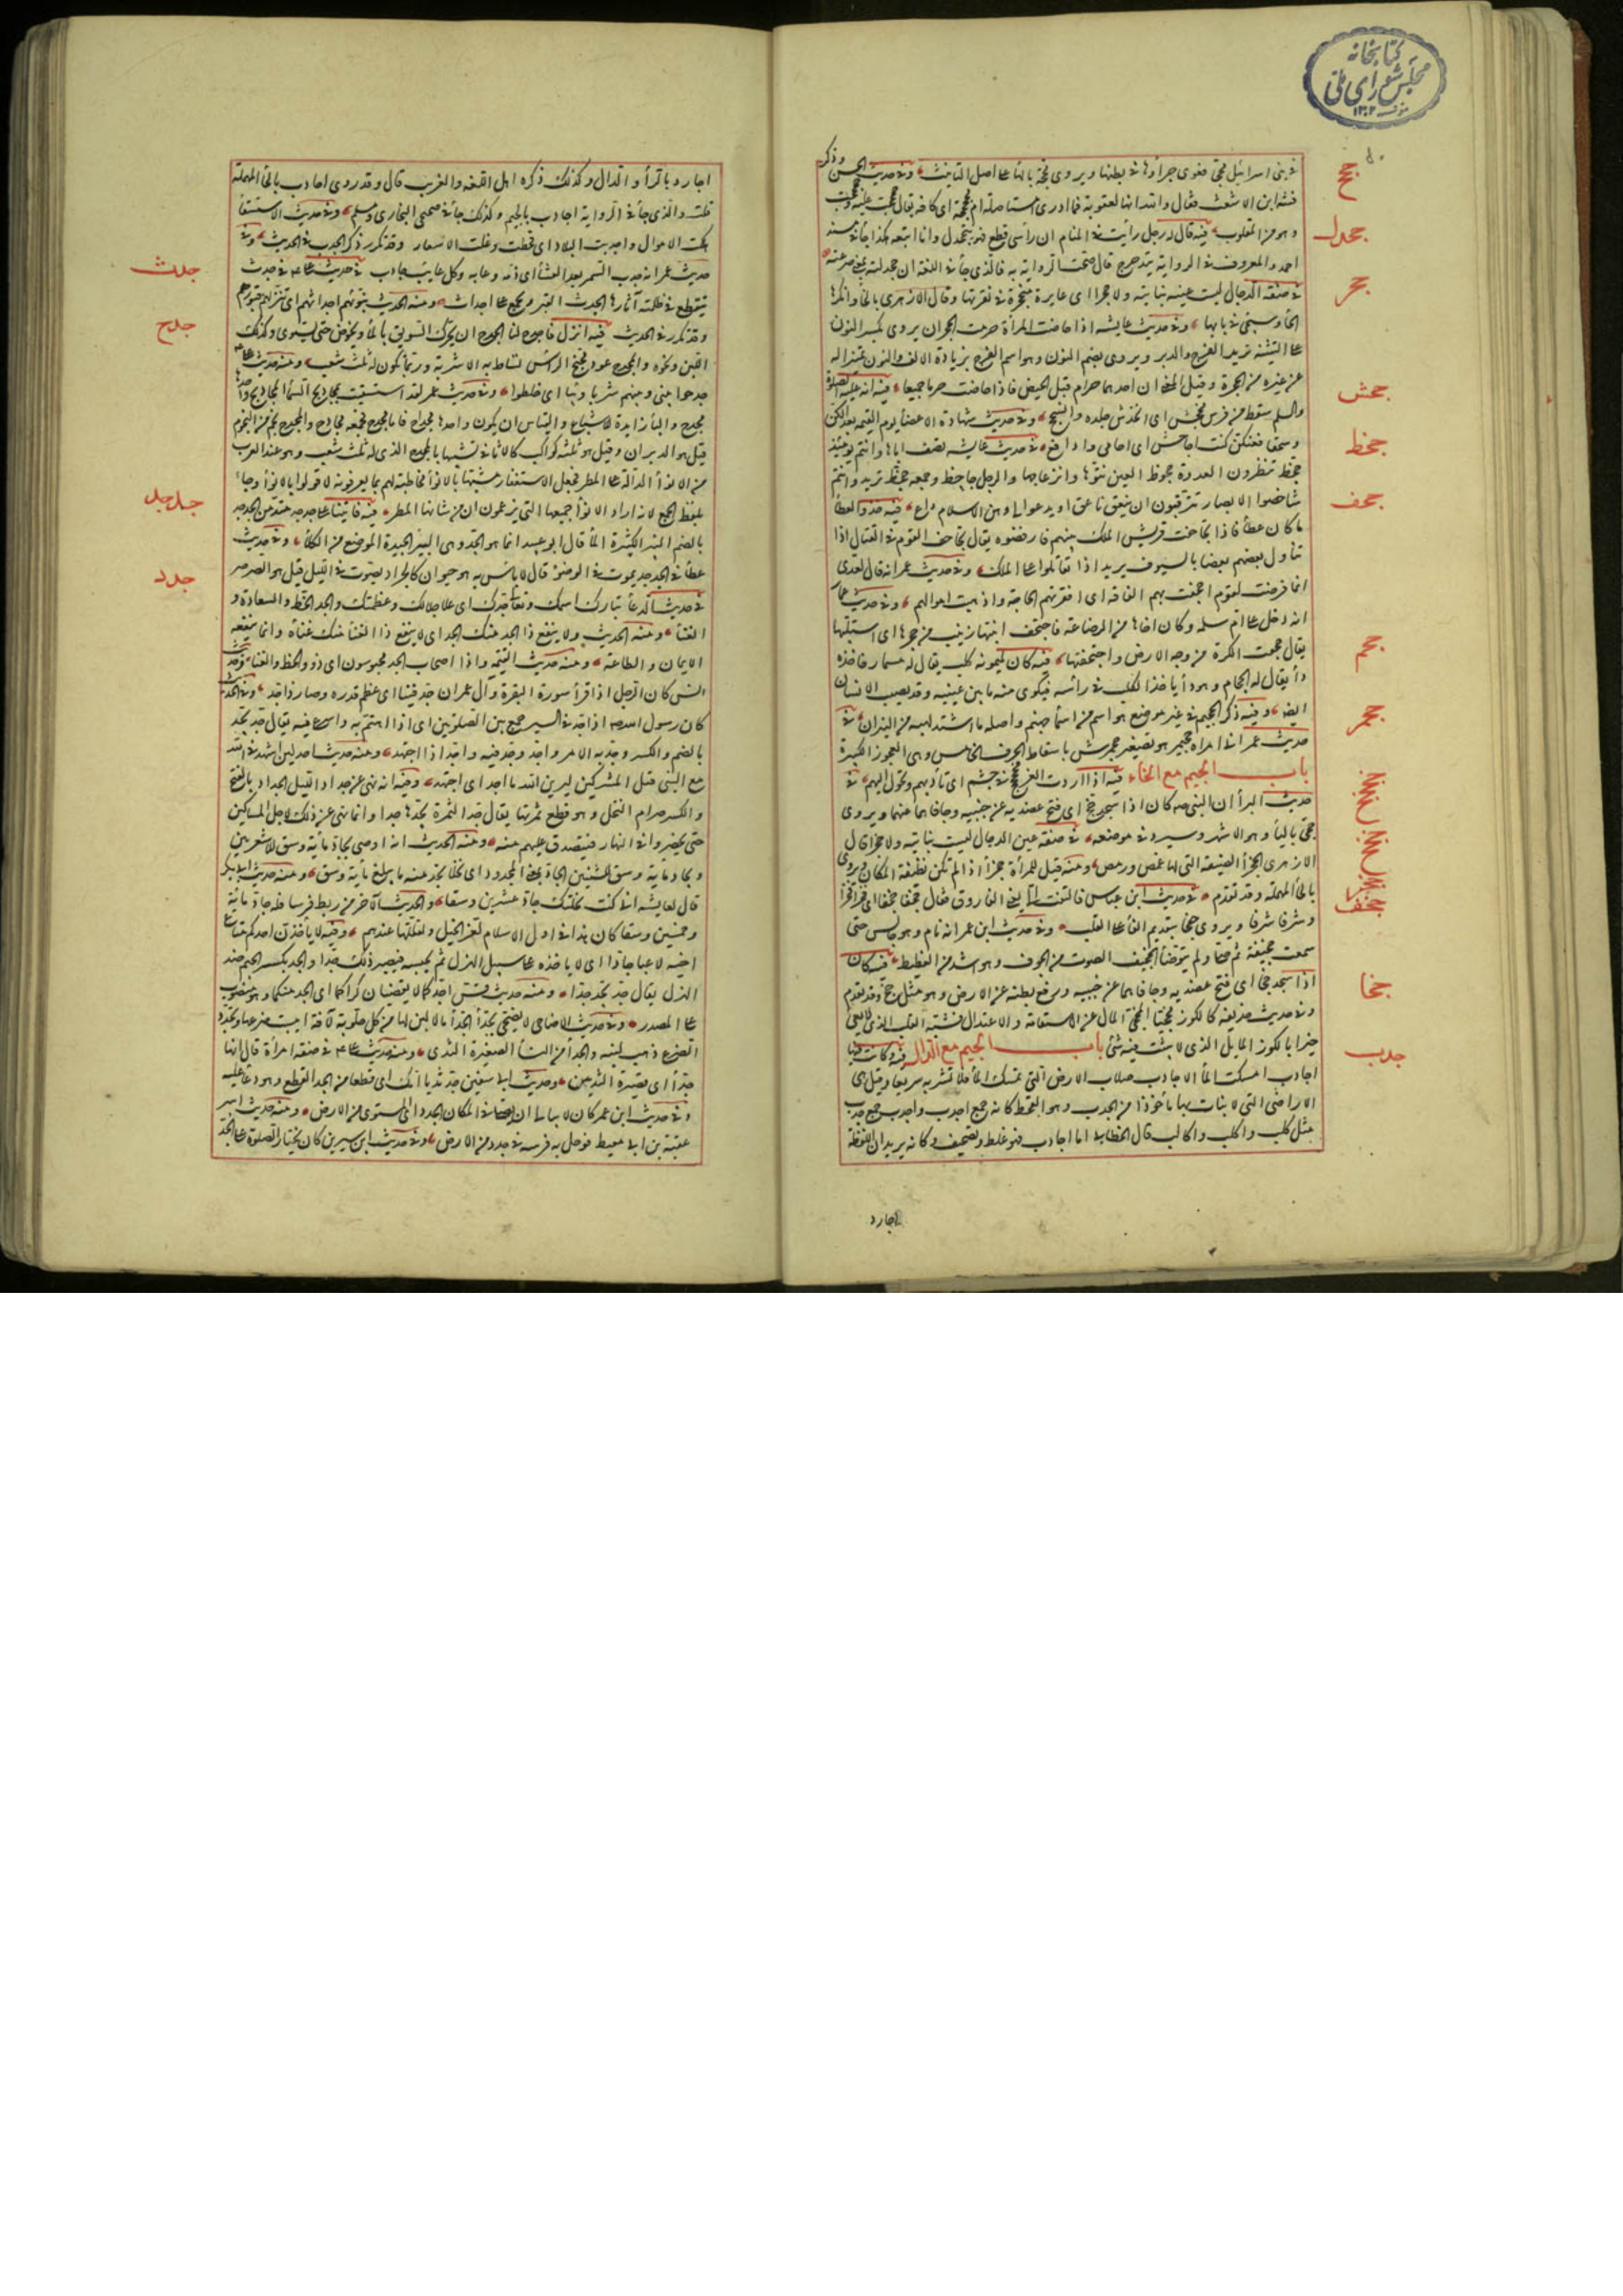 كتابخانه
مجلس شورای ملی
في بني اسرائيل مجح فعوى جراؤها في بطنها ويروى مجحة بالهاء على اصل التانيث وفي حديث الحسن وذكر
فتنة ابن الاشعث فقال والله انها لعقوبة فما ادرى مستاصلة ام مجحجحة اى كافة يقال جحجحت عليه وحجحجت
وهو من المقلوب فيه قال له رجل رأيت في المنام ان رأسي قطع فهو يتجحدل وانا اتبعه هكذا جاء في مسند
احمد والمعروف في الرواية يتدحرج قال صحت الرواية به فالذي جاء في اللغة ان جحدلته بمعنى صرعته
في صفة الدجال ليست عينه بناتية ولا جحراء اى غايرة منجحرة في نقرتها وقال الازهرى بالخاء وانكر الحاء
وسيجئ في بابها وفي حديث عايشه اذا حاضت المرأة حرمت الجحران يروى بكسر النون
على التثنية تريد الفرج والدبر ويروى بضم النون وهو اسم الفرج بزيادة الالف والنون تمييزا له
عن غيره من الجحرة وقيل المعنى ان احدهما حرام قبل الحيض فاذا حاضت حرما جميعا فيه انه عليه الصلوة
والسلم سقط من فرس فجحش اى انخدش جلده وانسحج وفي حديث شهادة الاعضاء يوم القيمة بعدا لكن
وسحقا فعنكن كنت اجاحش اى احامى وادافع في حديث عايشه تصف اباها وانتم يومئذ
جحظ تنظرون العدوة جحوظ العين نتوها وانزعاجها والرجل جاحظ وجمعه جحظ تريد وانتم
شاخصوا الابصار تترقبون ان ينعق ناعق او يدعو الى وهن الاسلام داع فيه خذوا العطاء
ما كان عطاء فاذا تجاحفت قريش الملك بينهم فارفضوه يقال تجاحف القوم في القتال اذا
تناول بعضهم بعضا بالسيوف يريد اذا تقاتلوا على الملك وفي حديث عمر انه قال لعدى
انما فرضت لقوم اجحفت بهم الفاقة اى افقرتهم الحاجة واذهبت اموالهم وفي حديث عمار
انه دخل على ام سلمه وكان اخاها من الرضاعة فاجتحف ابنتها زينب من حجرها اى استلبها
يقال جحفت الكرة من وجه الارض واجتحفتها فيه كان لميمونه كلب يقال له مسمار فاخذه
داء يقال له الجحام وهو داء ياخذ الكلب في رأسه فيكوى منه ما بين عينيه وقد يصيب الانسان
ايضا وفيه ذكر الجحيم في غير موضع هو اسم من اسماء جهنم واصله ما اشتد لهبه من النيران في
حديث عمر انى امراه جحيمر هو تصغير جحمرش باسقاط الحرف الخامس وهى العجوز الكبيرة
باب الجيم مع الخاء فيه اذا اردت العز فجخجخ في جشم اى ناد بهم وتحول اليهم في
حديث البراء ان النبي صه كان اذا سجد جخ اى فتح عضديه عن جنبيه وجافاهما عنهما ويروى
جخى بالياء وهو الاشهر وسيرد في موضعه في صفة عين الدجال ليست بناتية ولا جخراء قال
الازهرى الجخراء الضيقة التى لها غمص ورمص ومنه قيل للمرأة جخراء اذا لم تكن نظيفة المكان ويروى
بالحاء المهملة وقد تقدم في حديث ابن عباس فالتفت الى يعنى الفاروق فقال جخفا جخفا اى فخرا فخرا
وشرفا شرفا ويروى جفخا بتقديم الفاء على القلب وفي حديث ابن عمر انه نام وهو جالس حتى
سمعت جخيفه ثم صلى ولم يتوضأ الجخيف الصوت من الجوف وهو اشد من الغطيط فيه كان
اذا سجد جخى اى فتح عضديه وجافاهما عن جنبيه ورفع بطنه عن الارض وهو مثل جخ وقد تقدم
وفي حديث حذيفه كالكوز مجخيا المجخى المال عن الاستقامة والاعتدال فشبه القلب الذي لا يعى
خيرا بالكوز المايل الذي لا يثبت فيه شئ باب الجيم مع الدال فيه وكانت فيها
اجادب امسكت الماء الاجادب صلاب الارض التي تمسك الماء فلا تشربه سريعا وقيل هى
الاراضى التى لا نبات بها ماخوذا من الجدب وهو القحط كانه جمع اجدب واجدب جمع جدب
مثل كلب واكلب واكالب قال الخطابى اما اجادب فهو غلط وتصحيف وكانه يريد ان اللفظة
اجارد
جحح
جحدل
جحر
جحش
جحظ
جحف
جحم
جحمر
جخف
جخا
جدب
اجارد بالراء والدال وكذلك ذكره اهل اللغة والغريب قال وقد روى احادب بالحاء المهملة
قلت والذي جاء في الرواية اجادب بالجيم وكذلك جاء في صحيحى البخارى ومسلم وفي حديث الاستسقاء
هلكت الاموال واجدبت البلاد اى قحطت وغلت الاسعار وقد تكرر ذكر الجدب في الحديث وفي
حديث عمر انه جدب السمر بعد العشاء اى ذمه وعابه وكل عايب جادب في حديث على ع في جدث
ينقطع في ظلمته آثارها الجدث القبر ويجمع على اجداث ومنه الحديث نبوئهم اجداثهم اى ننزلهم قبورهم
وقد تكرر في الحديث فيه انزل فاجدح لنا الجدح ان يحرك السويق بالماء ويخوض حتى يستوى وكذلك
اللبن ونحوه والمجدح عود مجنح الرأس تساط به الاشربة وربما يكون له ثلث شعب ومنه حديث على ع
جدحوا بينى وبينهم شربا وبيئا اى خلطوا وفي حديث عمر لقد استسقيت بمجاديح السماء المجاديح واحدها
مجدح والياء زايدة للاشباع والقياس ان يكون واحدها مجداح فاما مجدح فجمعه مجادح والمجدح نجم من النجوم
قيل هو الدبران وقيل هو ثلثه كواكب كالاثافى تشبيها بالمجدح الذي له ثلث شعب وهو عند العرب
من الانواء الدالة على المطر فجعل الاستغفار مشبها بالانواء مخاطبة لهم بما يعرفونه لا قولا بالانواء وجاء
بلفظ الجمع لانه اراد الانواء جميعها التى يزعمون ان من شانها المطر فيه فاتينا على جدجد متدمن الجدجد
بالضم البئر الكثيرة الماء قال ابو عبيد انما هو الجد وهى البير الجيدة الموضع من الكلاء وفي حديث
عطاء في الجدجد يموت في الوضوء قال لا بأس به هو حيوان كالجراد يصوت في الليل قيل هو الصرصر
في حديث الدعاء تبارك اسمك وتعالى جدك اى علا جلالك وعظمتك والجد الحظ والسعادة و
الغناء ومنه الحديث ولا ينفع ذا الجد منك الجد اى لا ينفع ذا الغنا منك غناه وانما ينفعه
الايمان والطاعة ومنه حديث القيمه واذا اصحاب الجد محبوسون اى ذوو الحظ والغنا وحديث
انس كان الرجل اذا قرأ سورة البقرة وآل عمران جد فينا اى عظم قدره وصار ذا جد وفي الحديث
كان رسول الله صه اذا جد في السير جمع بين الصلوتين اى اذا اهتم به واسرع فيه يقال جد يجد
بالضم والكسر وجد به الامر واجد وجد فيه واجد اذا اجتهد ومنه حديث احد لين اشهدنى الله
مع النبى قتل المشركين ليرين الله ما اجد اى اجتهد وفيه انه نهى عن جداد الليل الجداد بالفتح
والكسر صرام النخل وهو قطع ثمرتها يقال جد الثمرة يجدها جدا وانما نهى عن ذلك لاجل المساكين
حتى يحضروا في النهار فيتصدق عليهم منه ومنه الحديث انه اوصى بجاد مأية وسق للاشعريين
وبجاد ماية وسق للشنيين الجاد بمعنى المجدود اى نخلا يجد منه ما يبلغ مأية وسق ومنه حديث ابى بكر
قال لعايشه انى كنت نحلتك جاد عشرين وسقا والحديث الآخر من ربط فرسا فله جاد مأية
وخمسين وسقا كان هذا في اول الاسلام لعز الخيل ولقلتها عندهم وفيه لا ياخذن احدكم متاع
اخيه لاعبا جادا اى لا ياخذه على سبيل الهزل ثم يحبسه فيصير ذلك جدا والجد بكسر الجيم ضد
الهزل يقال جد يجد جدا ومنه حديث قس اجدكما لا تقضيان كراكما اى ابجد منكما وهو منصوب
على المصدر وفي حديث الاضاحى لا يضحى بجداء الجداء ما لا لبن لها من كل حلوبة لآفة ايبست ضرعها وتجدد
الضرع ذهب لبنه والجداء من النساء الصغيرة الثدى ومنه حديث على ع في صفة امرأة قال انها
جداء اى قصيرة الثديين وحديث ابى سفين جد ثديا امك اى قطعا من الجد القطع وهو دعاء عليه
وفي حديث ابن عمر كان لا يبالى ان يصلى في المكان الجدد اى المستوى من الارض ومنه حديث اسر
عقبة بن ابى معيط فوحل به فرسه في جدد من الارض وفي حديث ابن سيرين كان يختار الصلوة على الجد
جدث
جدح
جدجد
جدد